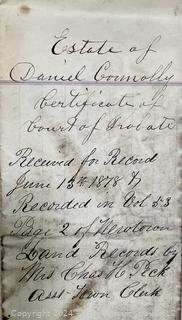 Estate of
Daniel Connolly
Certificate of
Court of Probate
Received for Record
June 13th 1878 &
Recorded in Vol 53
Page 2 of Newtown
Land Records by
Mrs Chas H. Peck
Asst Town Clerk